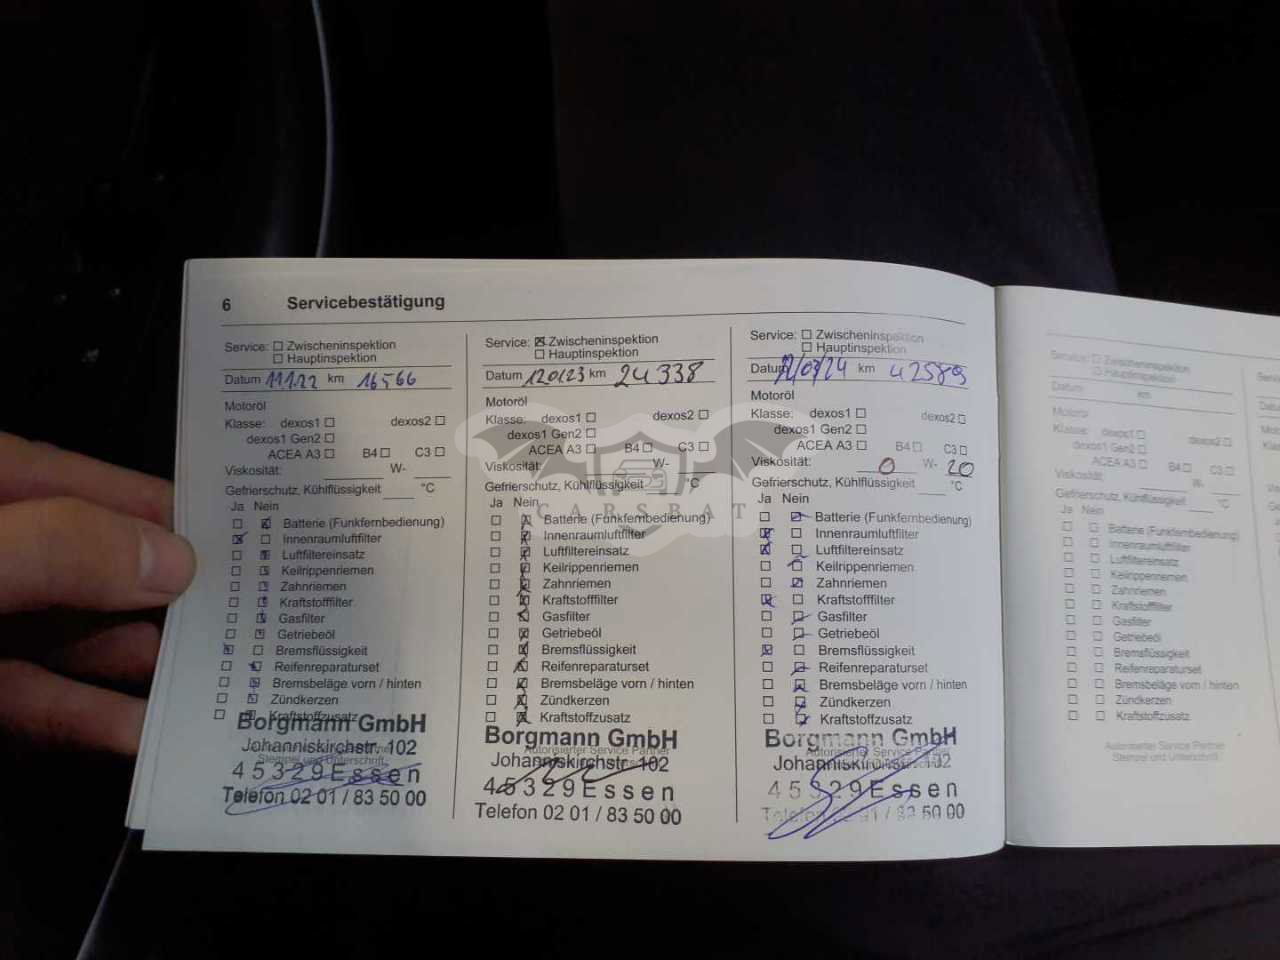 6 Servicebestätigung
Service: ☐ Zwischeninspektion
☐ Hauptinspektion
Datum 11.1.22 km 16566
Motoröl
Klasse: dexos1 ☐ dexos2 ☐
dexos1 Gen2 ☐
ACEA A3 ☐ B4 ☐ C3 ☐
Viskosität: W-
Gefrierschutz, Kühlflüssigkeit °C
Ja Nein
☐ ☒ Batterie (Funkfernbedienung)
☒ ☐ Innenraumluftfilter
☐ ☒ Luftfiltereinsatz
☐ ☒ Keilrippenriemen
☐ ☒ Zahnriemen
☐ ☒ Kraftstofffilter
☐ ☒ Gasfilter
☐ ☒ Getriebeöl
☒ ☐ Bremsflüssigkeit
☐ ☒ Reifenreparaturset
☐ ☒ Bremsbeläge vorn / hinten
☐ ☒ Zündkerzen
☐ ☒ Kraftstoffzusatz
Borgmann GmbH
Johanniskirchstr. 102
Stempel und Unterschrift
45329 Essen
Telefon 02 01 / 83 50 00
Service: ☒ Zwischeninspektion
☐ Hauptinspektion
Datum km 24338
Motoröl
Klasse: dexos1 ☐ dexos2 ☐
dexos1 Gen2 ☐
ACEA A3 ☐ B4 ☐ C3 ☐
Viskosität: W-
Gefrierschutz, Kühlflüssigkeit °C
Ja Nein
☐ ☒ Batterie (Funkfernbedienung)
☐ ☒ Innenraumluftfilter
☐ ☒ Luftfiltereinsatz
☐ ☒ Keilrippenriemen
☐ ☒ Zahnriemen
☐ ☒ Kraftstofffilter
☐ ☒ Gasfilter
☐ ☒ Getriebeöl
☐ ☒ Bremsflüssigkeit
☐ ☒ Reifenreparaturset
☐ ☒ Bremsbeläge vorn / hinten
☐ ☒ Zündkerzen
☐ ☒ Kraftstoffzusatz
Borgmann GmbH
Autorisierter Service Partner
Johanniskirchstr. 102
45329 Essen
Telefon 02 01 / 83 50 00
Service: ☐ Zwischeninspektion
☐ Hauptinspektion
Datum 12/03/24 km 42589
Motoröl
Klasse: dexos1 ☐ dexos2 ☐
dexos1 Gen2 ☐
ACEA A3 ☐ B4 ☐ C3 ☐
Viskosität: 0 W- 20
Gefrierschutz, Kühlflüssigkeit °C
Ja Nein
☐ ☒ Batterie (Funkfernbedienung)
☒ ☐ Innenraumluftfilter
☒ ☐ Luftfiltereinsatz
☐ ☒ Keilrippenriemen
☐ ☒ Zahnriemen
☒ ☐ Kraftstofffilter
☐ ☒ Gasfilter
☐ ☒ Getriebeöl
☒ ☐ Bremsflüssigkeit
☐ ☒ Reifenreparaturset
☐ ☒ Bremsbeläge vorn / hinten
☐ ☒ Zündkerzen
☐ ☒ Kraftstoffzusatz
Borgmann GmbH
Autorisierter Service Partner
Johanniskirchstr. 102
45329 Essen
Telefon 02 01 / 83 50 00
CARSBAT
Service: ☐ Zwischeninspektion
☐ Hauptinspektion
Datum km
Motoröl
Klasse: dexos1 ☐ dexos2 ☐
dexos1 Gen2 ☐
ACEA A3 ☐ B4 ☐ C3 ☐
Viskosität: W-
Gefrierschutz, Kühlflüssigkeit °C
Ja Nein
☐ ☐ Batterie (Funkfernbedienung)
☐ ☐ Innenraumluftfilter
☐ ☐ Luftfiltereinsatz
☐ ☐ Keilrippenriemen
☐ ☐ Zahnriemen
☐ ☐ Kraftstofffilter
☐ ☐ Gasfilter
☐ ☐ Getriebeöl
☐ ☐ Bremsflüssigkeit
☐ ☐ Reifenreparaturset
☐ ☐ Bremsbeläge vorn / hinten
☐ ☐ Zündkerzen
☐ ☐ Kraftstoffzusatz
Autorisierter Service Partner
Stempel und Unterschrift